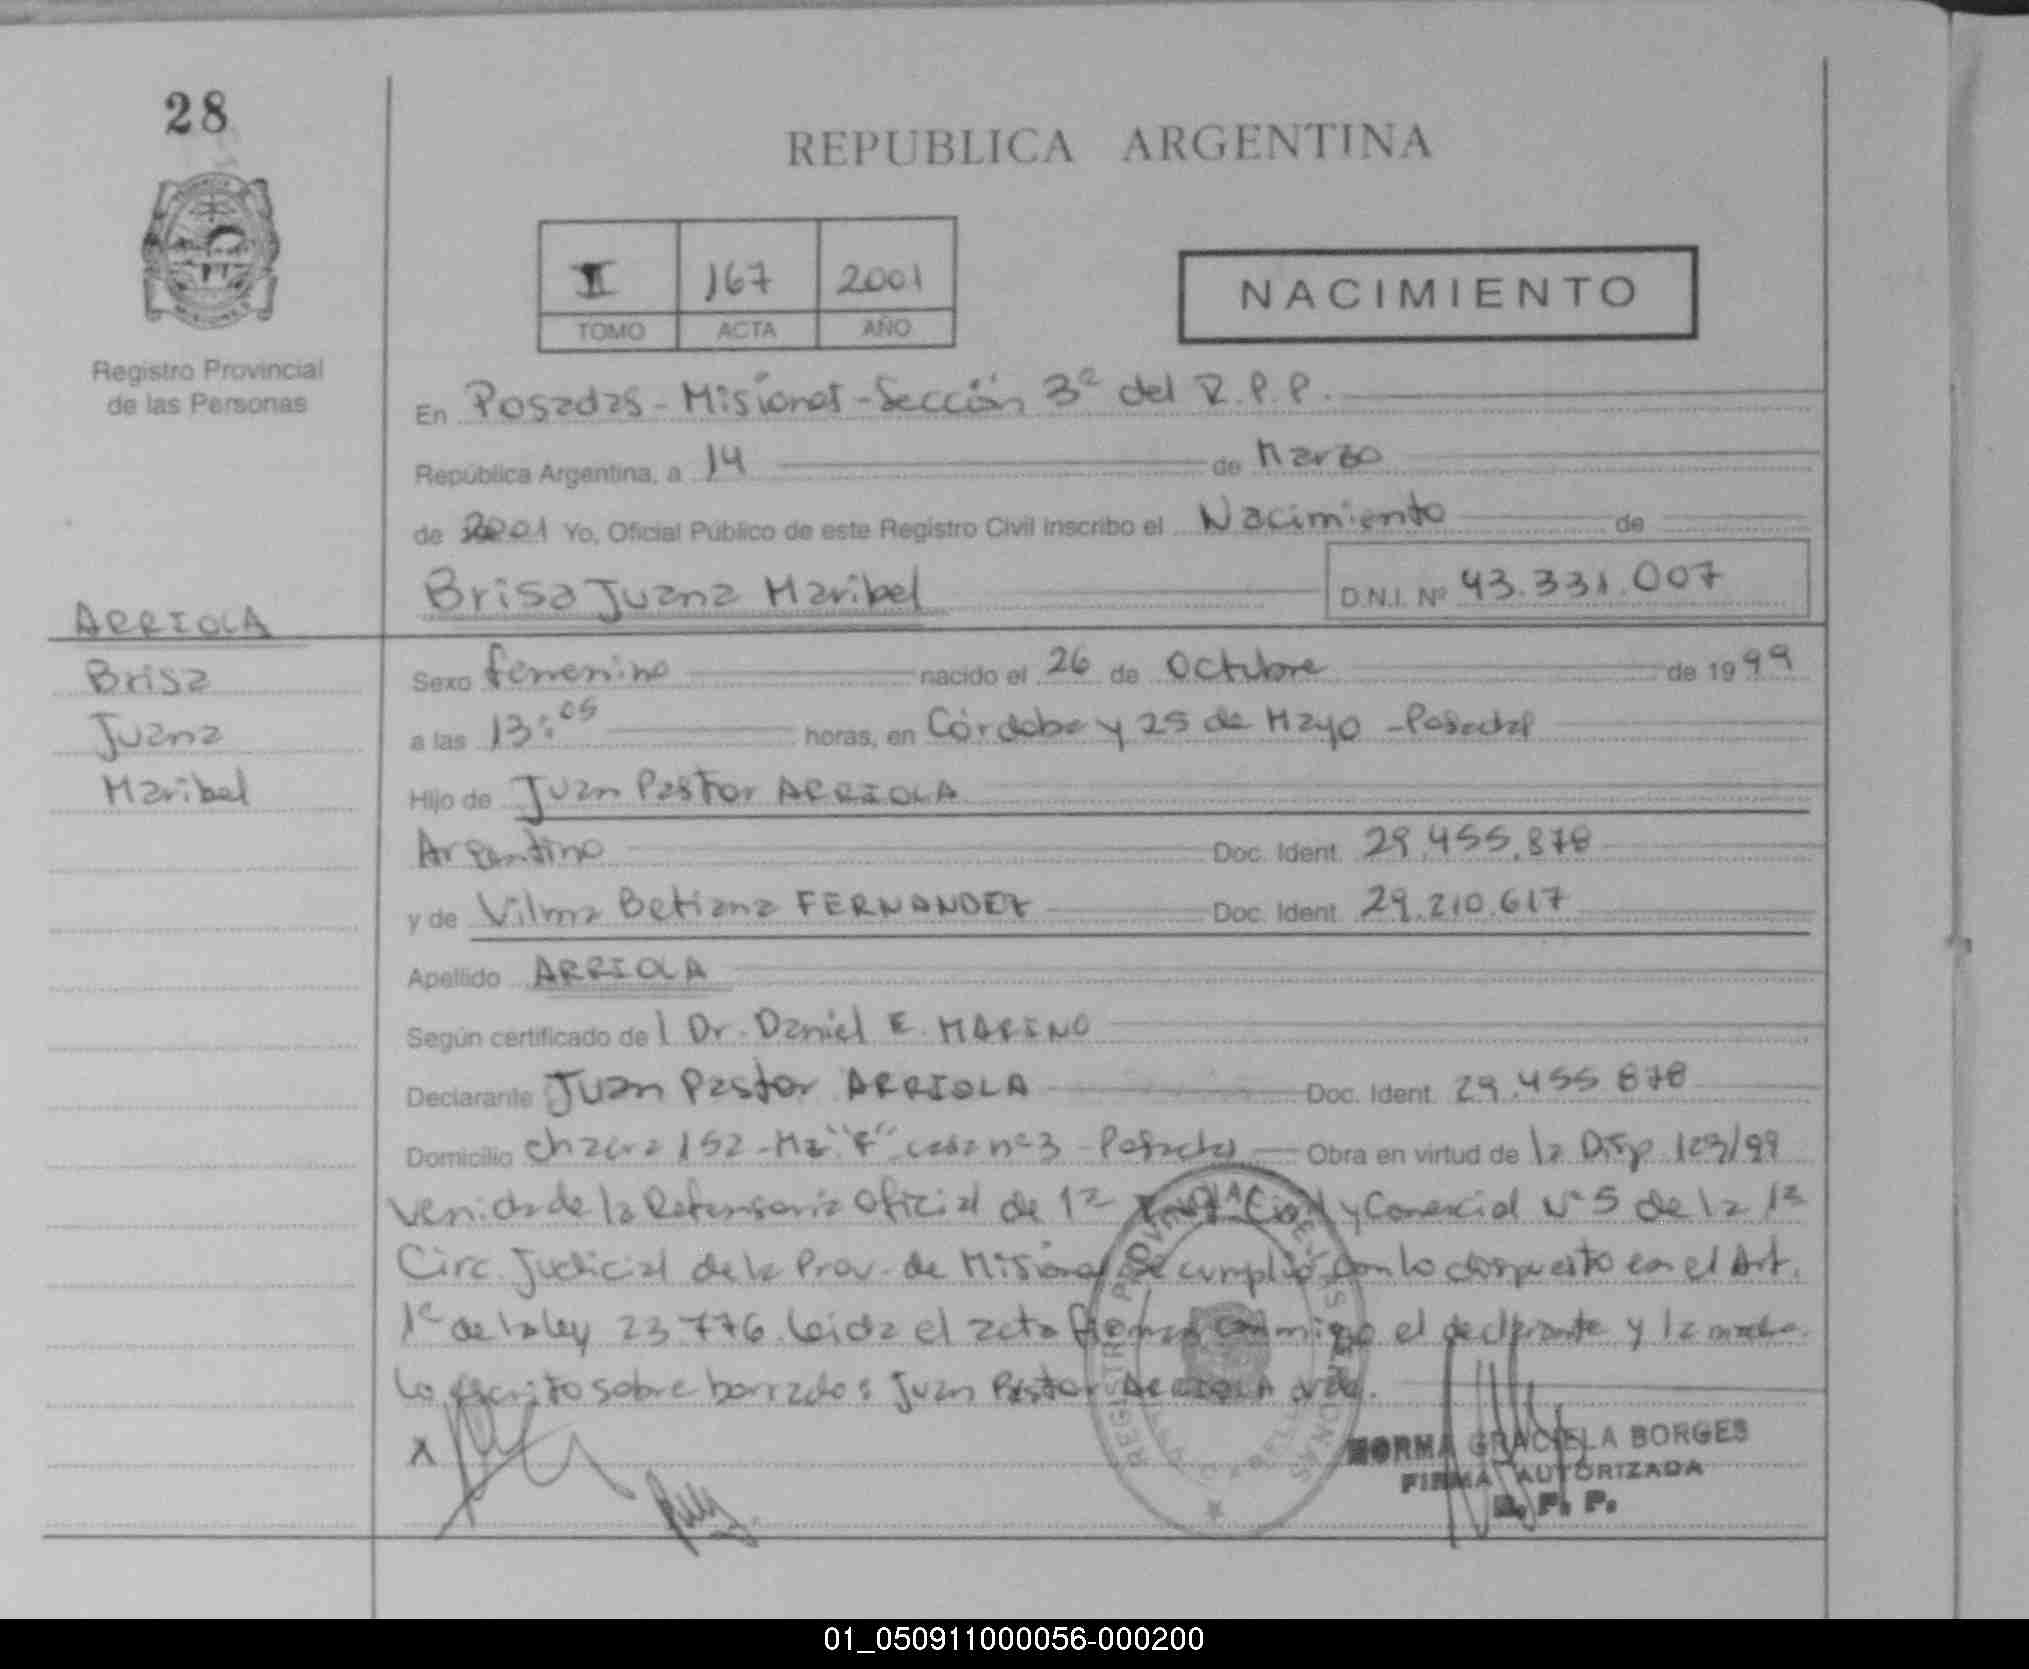 28
REPUBLICA ARGENTINA
II 167 2001
TOMO ACTA AÑO
NACIMIENTO
Registro Provincial
de las Personas
En Posadas - Misiones - Sección 3ª del R.P.P.
República Argentina, a 14 de Marzo
de 2001 Yo, Oficial Público de este Registro Civil inscribo el Nacimiento de
Brisa Juana Maribel D.N.I. Nº 43.331.007
ARRIOLA
Brisa
Juana
Maribel
Sexo femenino nacido el 26 de Octubre de 1999
a las 13:05 horas, en Córdoba y 25 de Mayo - Posadas
Hijo de Juan Pastor ARRIOLA
Argentino Doc. Ident. 29.455.878
y de Vilma Betiana FERNANDEZ Doc. Ident. 29.210.617
Apellido ARRIOLA
Según certificado del Dr. Daniel E. MARINO
Declarante Juan Pastor ARRIOLA Doc. Ident. 29.455.878
Domicilio chacra 152 - Mz "F" casa nº 3 - Posadas Obra en virtud de la Disp 123/99
venida de la Defensoría Oficial de 1ª Civil y Comercial Nº 5 de la 1ª
Circ. Judicial de la Prov. de Misiones Se cumplió con lo dispuesto en el Art.
1º de la ley 23.776. Leida el acta firman conmigo el declarante y la madre.
Lo escrito sobre borrado: Juan Pastor ARRIOLA vale.
x
REGISTRO PROVINCIAL DE LAS PERSONAS
NORMA GRACIELA BORGES
FIRMA AUTORIZADA
R. P. P.
01_050911000056-000200